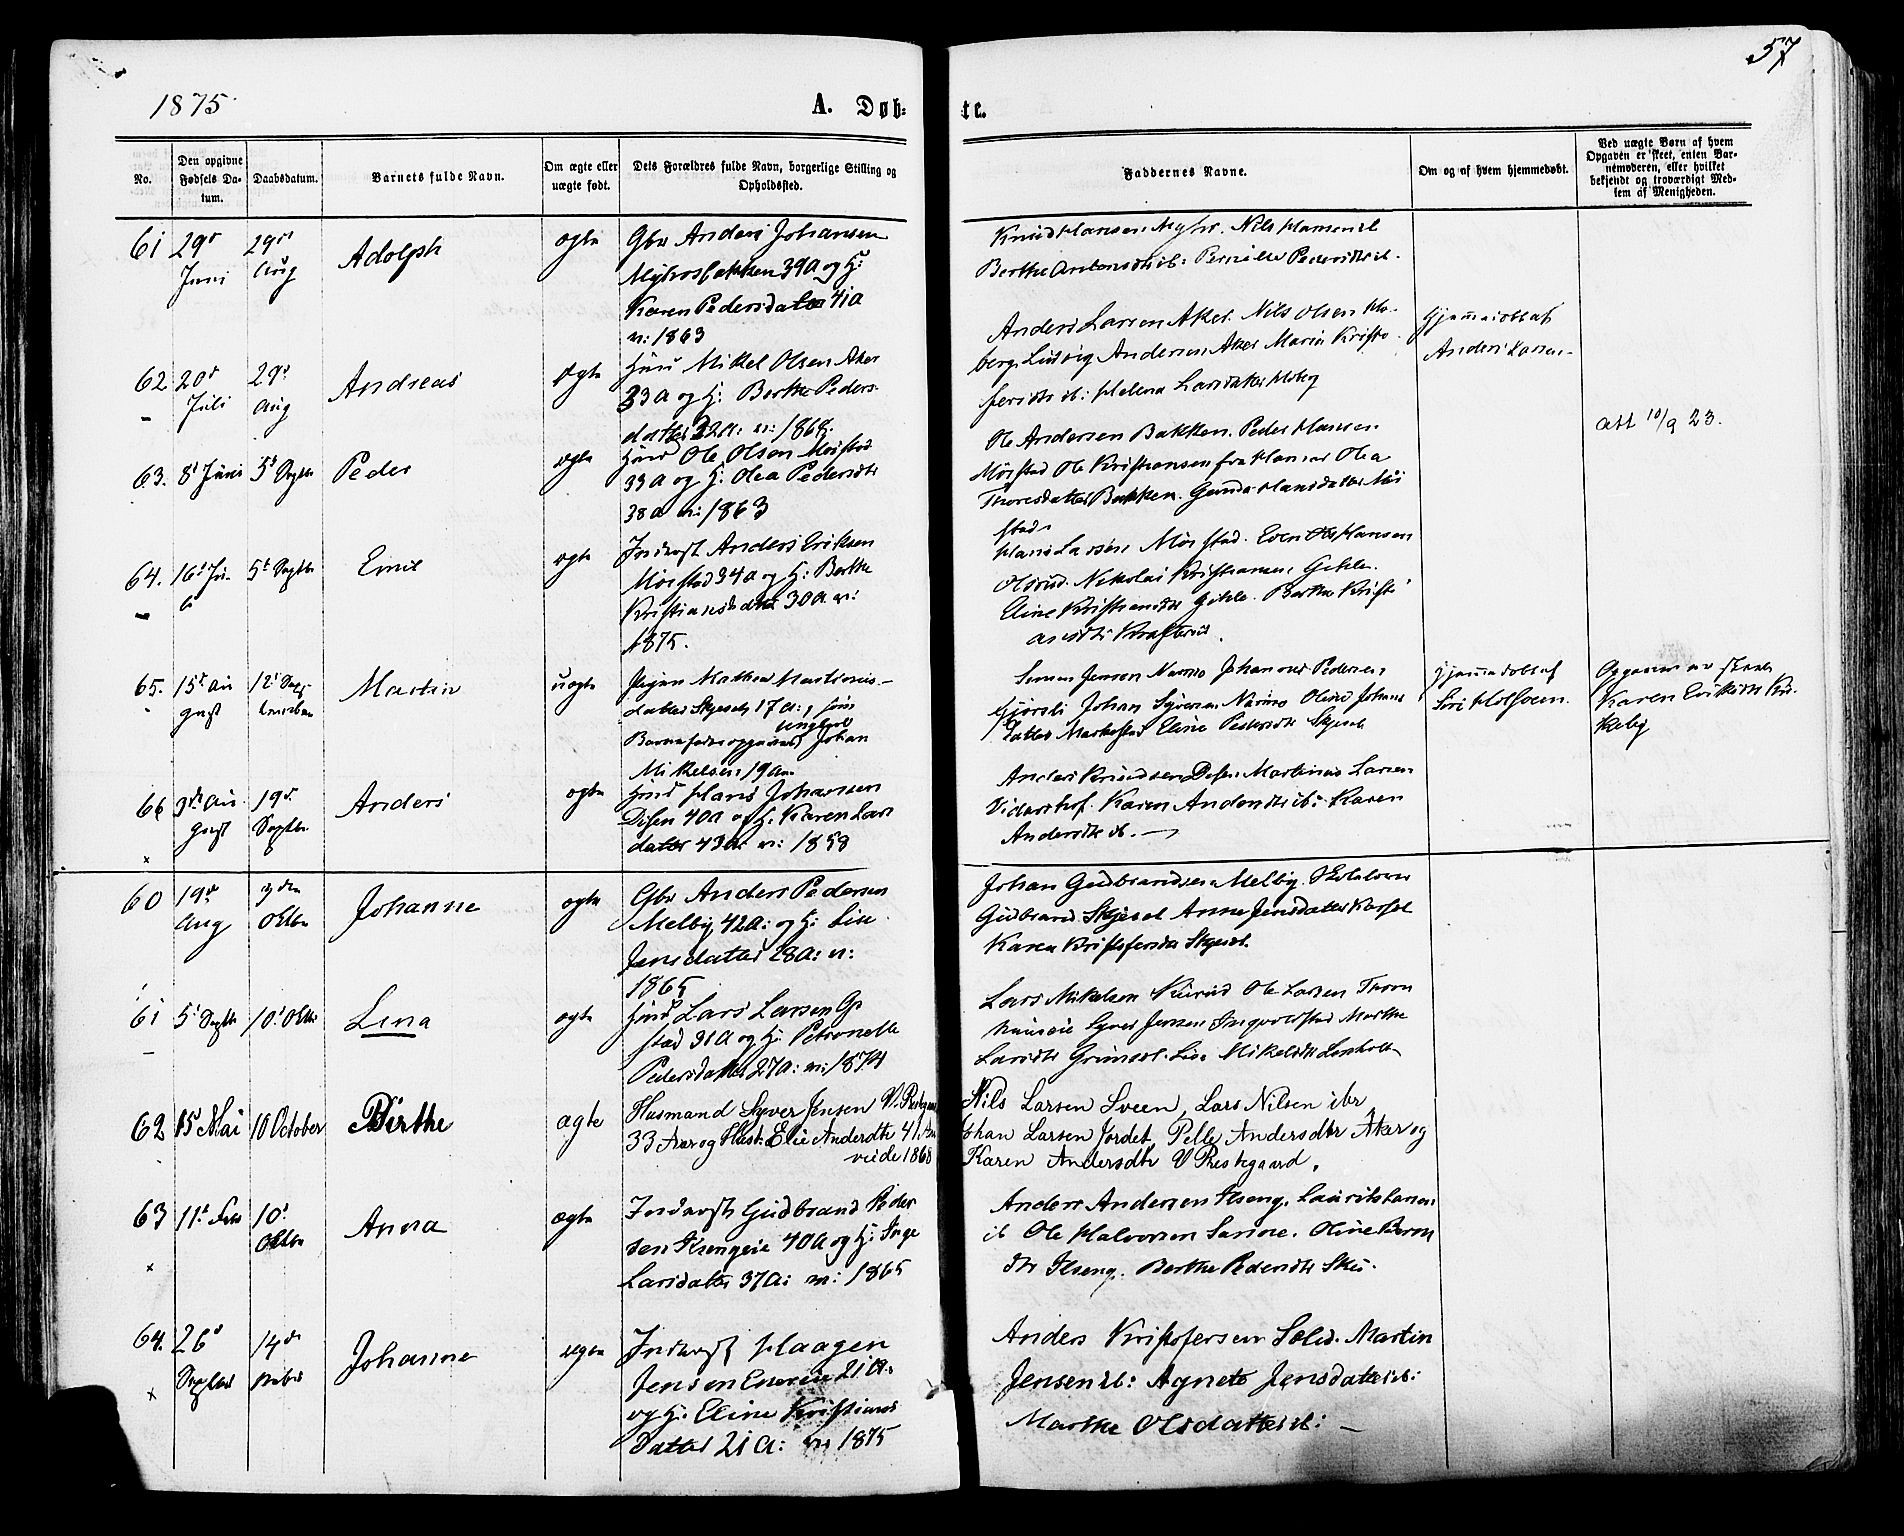 57
1875
A. Døb-
te.
No.
Den opgivne
Fødsels Da-
tum.
Daabsdatum.
Barnets fulde Navn.
Om ægte eller
uægte født.
Dets Forældres fulde Navn, borgerlige Stilling og
Opholdssted.
Faddernes Navne.
Om og af hvem hjemmedøbt.
Ved uægte Børn af hvem
Opgaven er skeet, enten Bar-
nemoderen, eller hvilket
bekjendt og troværdigt Med-
lem af Menigheden.
61
29d
Juni
29d
Aug
Adolph
ægte
Gbr Anders Johansen
39 A og H:
Karen Pedersdatter 41 A
v: 1863
Knud Hansen Nils Hansen ib
Berthe ib: Pernille Pedersdtr ib.
62
20d
Juli
29d
Aug
Andreas
ægte
Huusm Mikel Olsen Aker
33 A og H: Berthe Peders-
datter 32 A: v: 1868.
Anders Larsen Aker. Nils Olsen Ho-
berg Ludvig Andersen Aker Marie Kristo-
fersdtr ib: Helene Larsdatter Hoberg
Hjemmedøbt af
Anders Larsen
63.
8d Juni
5d Septbr
Peder
ægte
Husm Ole Olsen Mørstad
39 A og H: Olea Pedersdtr
38 A v: 1863
Ole Andersen Bakken. Peder Hansen
Mørstad Ole Kristiansen fra Hamar Olea
Thoresdatter Bakken. Gunda Hansdatter Mør
stad
att 10/9 23.
64.
16d Ju-
li
5d Septbr
Emil
ægte
Inderst Anders Eriksen
Mørstad 34 A og H: Berthe
Kristiansdatter 30 A v:
1875.
Hans Larsen Mørstad. Even Hansen
Olsrud. Nikolai Kristiansen Gihle.
Eline Kristiansdtr Gihle. Berthe Kristi
ansdtr
65.
15d Au
gust
12d Sep-
tember
Martin
uægte
Pigen Mathea Martinus-
datter Skjeset 17 A:,
ungkarl
Barnefader opgivet Johan
Mikelsen 19 Aar
Simen Jensen Johannes Pedersen
Johan Syversen Oline Johans
datter Eline Pedersdtr Skjeset
Hjemmedøbt af
Siri Holsveen.
Opgaven av
Karen Eriksdtr
66
3d Au-
gust
19d
Septbr.
Anders
ægte
Husm Hans Johansen
Disen 40 A og H. Karen Lars
datter 43 A v: 1858
Anders Knudsen Disen Martinus Larsen
Vidarshof. Karen Andersdtr ib: Karen
Andersdtr ib.
60
19d
Aug
3den
Oktbr
Johanne
ægte
Gbr Anders Pedersen
Melby 42 A: og H: Lise
Jensdatter 28 A: v:
1865
Johan Gudbrandsen Melby.
Gudbrand Skjeset Anne Jensdatter
Karen Kristofersdtr Skjeset.
61
5d Septbr
10d Oktbr
Lina
ægte
Husm Lars Larsen
stad 31 A og H: Petronelle
Pedersdatter 27 A: v: 1874
Lars Mikelsen Ole Larsen
Syver Jensen Ingvoldstad Marthe
Larsdtr Grimset. Lise Mikelsdtr
62
15 Mai
10 October
Birthe
ægte
Husmand Syver Jensen V. Prestegaard
33 Aar og Hust. Elie Andersdtr 41 Aar
viede 1868
Nils Larsen Sveen, Lars Nilsen ibr
Johan Larsen Jordet, Pelle Andersdtr Aker og
Karen Andersdtr V Prestegaard.
63
11d Feb
10d
Oktbr
Anna
ægte
Inderst Gudbrand Peder
sen 40 A og H: Inge
Larsdatter 37 A: v: 1865
Anders Andersen Ilseng. Laurits Larsen
ib Ole Halvorsen Oline
dtr Ilseng. Berthe Pedersdtr
64.
26d
Septbr
14d
Johanne
ægte
Inderst Haagen
Jensen 21 A:
og H: Eline Kristians
datter 21 A: v: 1875
Anders Kristofersen Martin
Jensen ib: Agnete Jensdatter ib:
Marthe Olsdatter ib: